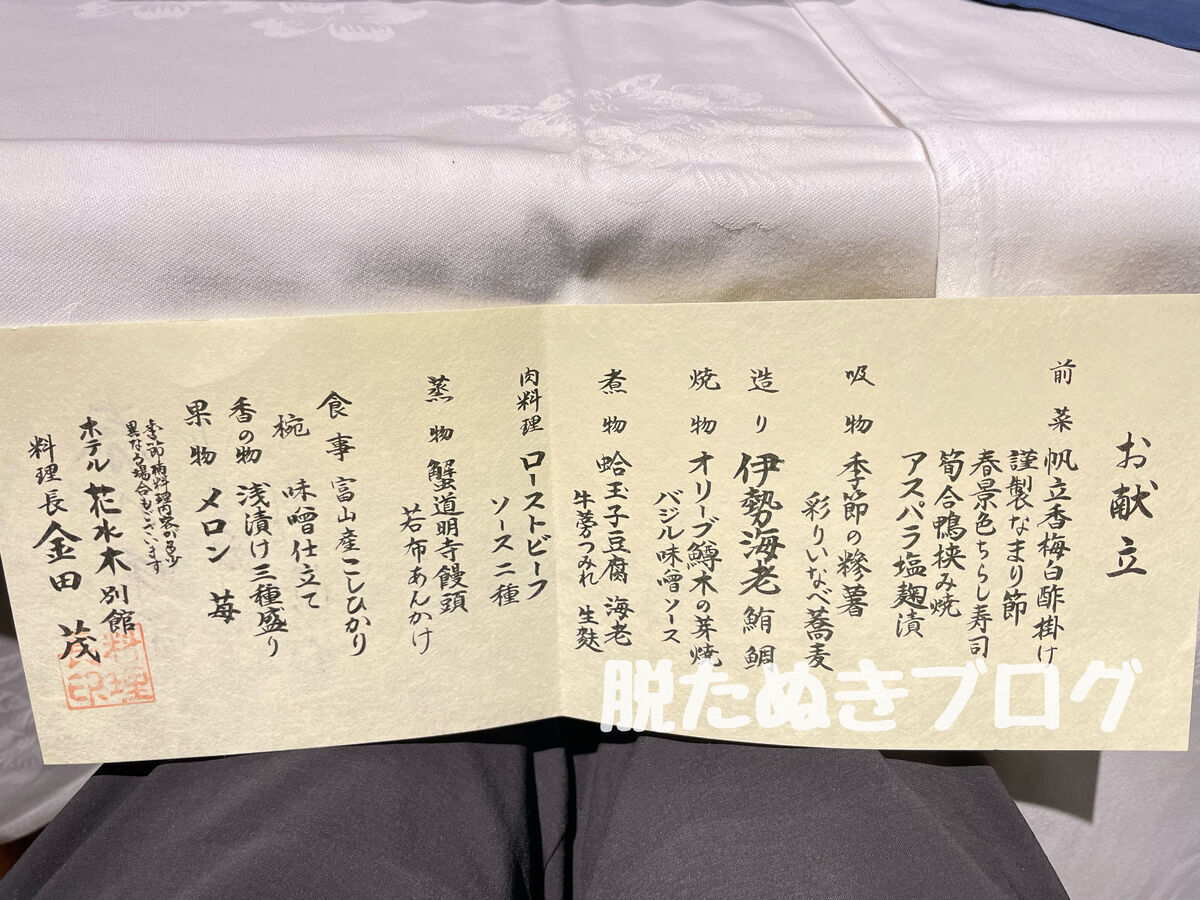 お献立
前菜 帆立香梅白酢掛け
謹製なまり節
春景色ちらし寿司
筍合鴨挟み焼
アスパラ塩麹漬
吸物 季節の糝薯
彩りいなべ蕎麦
造り 伊勢海老 鮪 鯛
焼物 オリーブ鱒木の芽焼
バジル味噌ソース
煮物 蛤玉子豆腐 海老
牛蒡つみれ 生麩
肉料理 ローストビーフ
ソース二種
蒸物 蟹道明寺饅頭
若布あんかけ
食事 富山産こしひかり
椀 味噌仕立て
香の物 浅漬け三種盛り
果物 メロン 苺
季節柄料理内容が多少
異なる場合もございます
ホテル花水木別館
料理長 金田 茂
料理長印
脱たぬきブログ